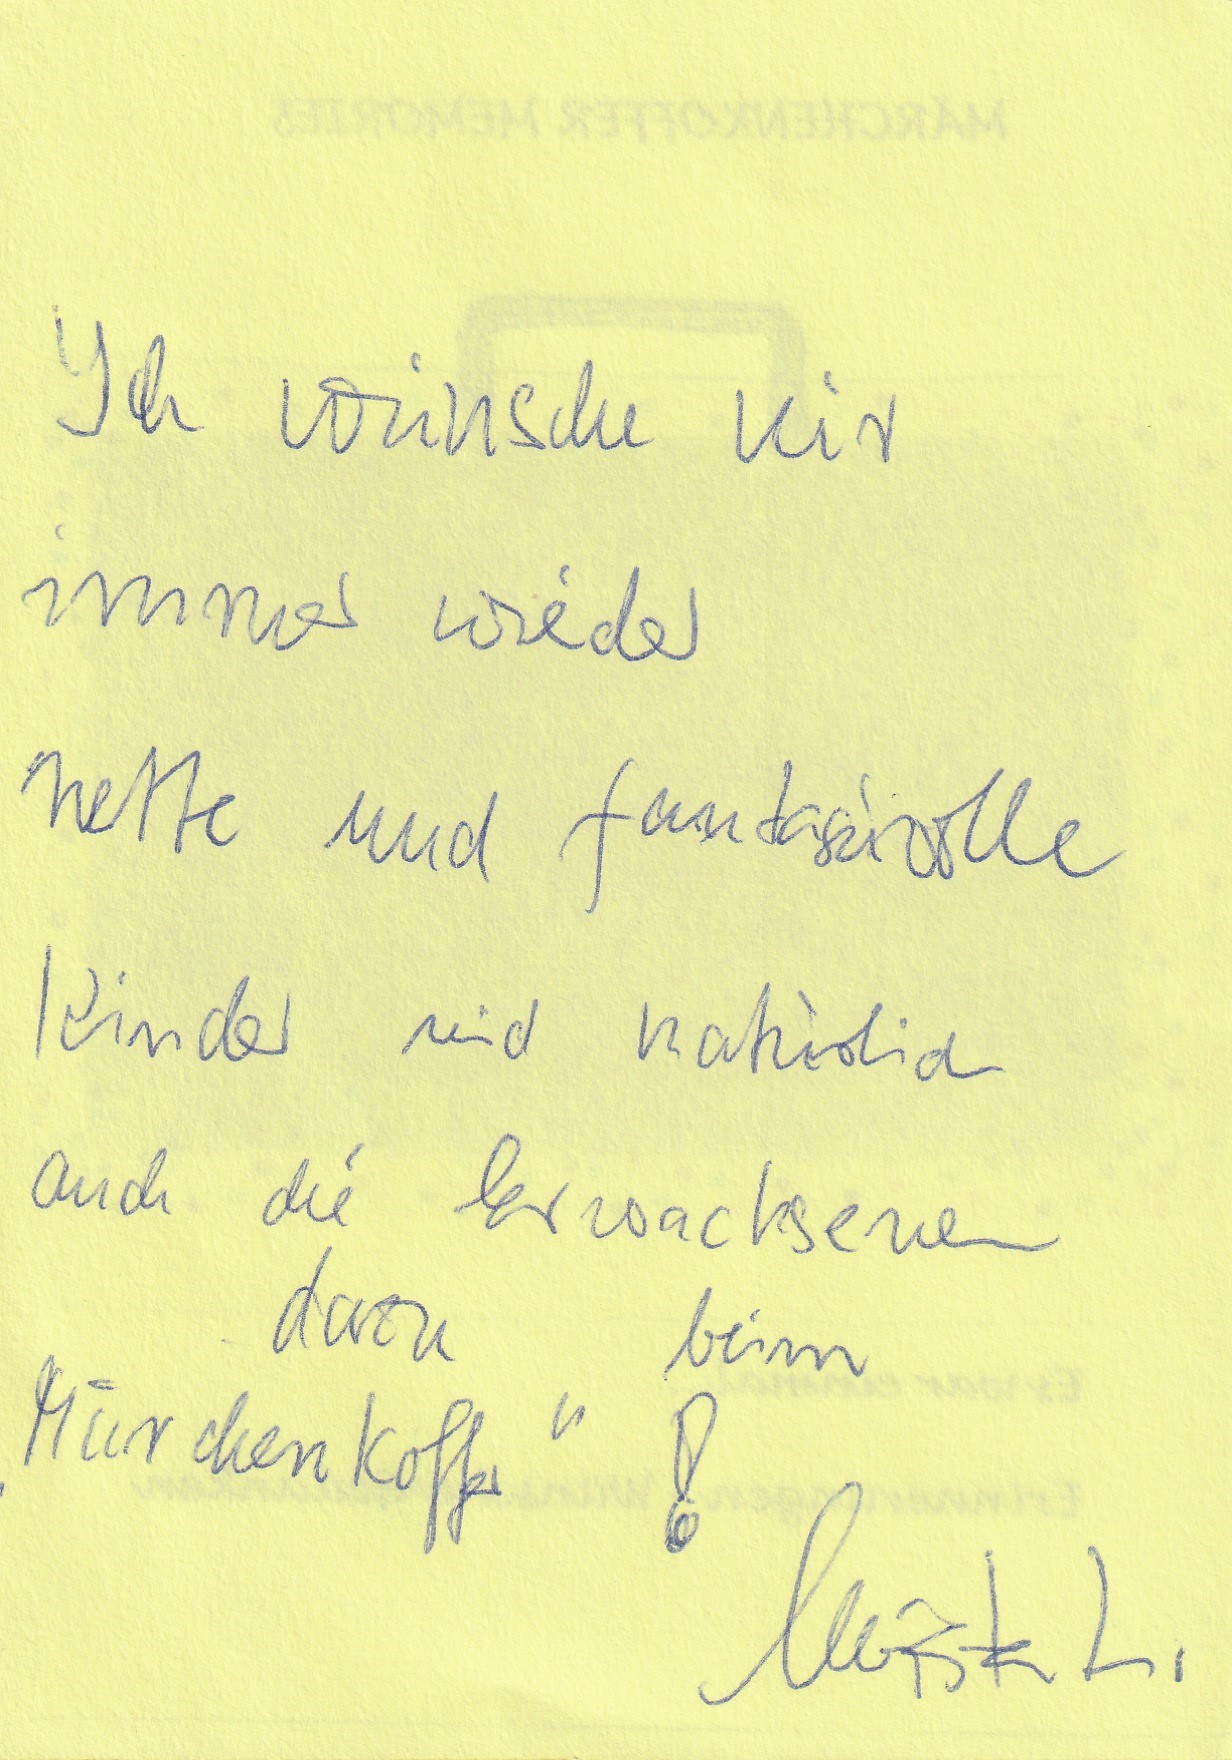 Ich wünsche mir
immer wieder
nette und fantasievolle
Kinder und natürlich
auch die Erwachsenen
davon beim
„Märchenkoffer" !